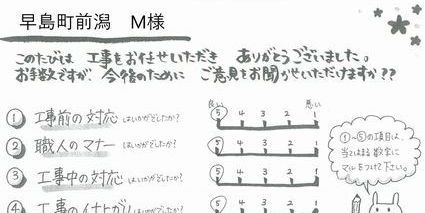 早島町前潟 M様
このたびは 工事をお任せいただき ありがとうございました。
お手数ですが、今後のために ご意見をお聞かせいただけますか??
良い 悪い
① 工事前の対応 はいかがでしたか? 5 4 3 2 1
② 職人のマナー はいかがでしたか? 5 4 3 2 1
③ 工事中の対応 はいかがでしたか? 5 4 3 2 1
④ 工事の仕上がり はいかがでしたか? 5 4 3 2 1
①~⑤の項目は、
当てはまる数字に
マルをつけて下さい。